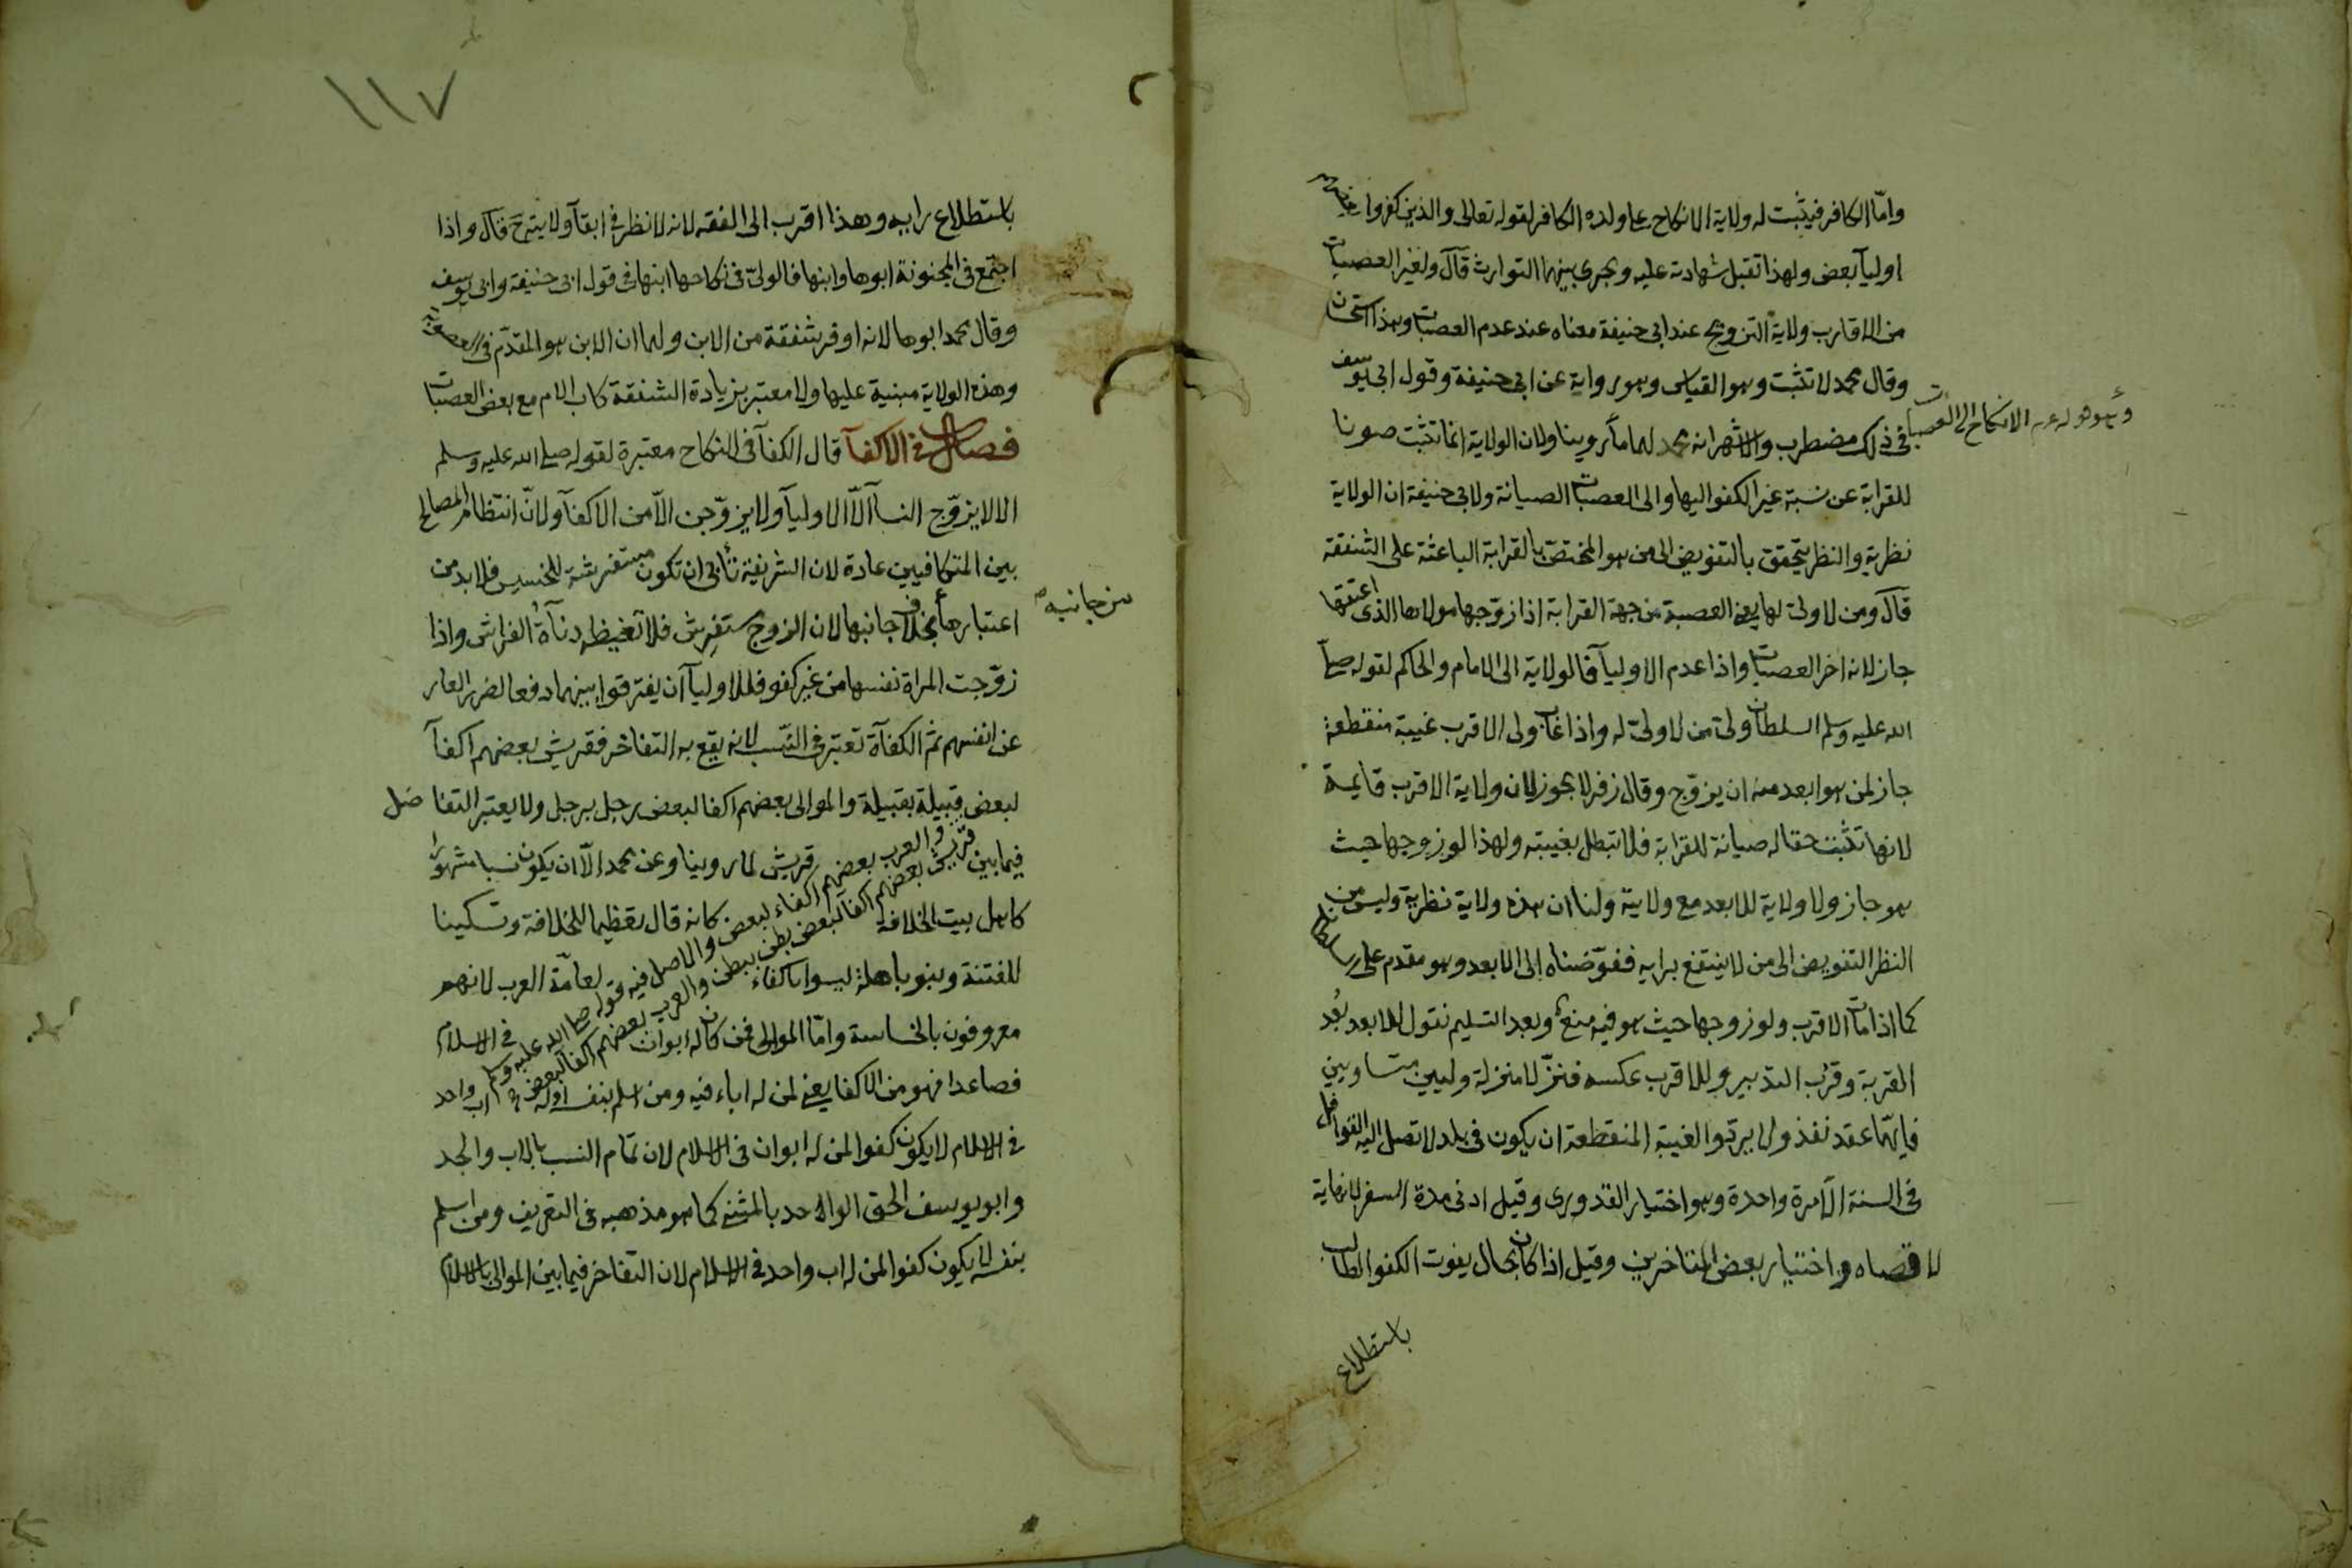 واما الكافر فيثبت له ولاية الانكاح على ولده الكافر لقوله تعالى والذين كفروا بعضهم
اوليآ بعض ولهذا تقبل شهادته عليه ويجرى بينهما التوارث قال ولغير العصبات
من الاقارب ولاية التزويج عند ابى حنيفة معناه عند عدم العصبات وهذا استحسان
وقال محمد لا تثبت وهو القياس وهو رواية عن ابى حنيفة وقول ابى يوسف
فى ذلك مضطرب والاشهر انه مع محمد لهما ما روينا ولان الولاية انما تثبت صونا
الانكاح الى العصبات
للقرابة عن نسبة غير الكفو اليها والى العصبات الصيانة ولابى حنيفة ان الولاية
نظرية والنظر يتحقق بالتفويض الى من هو المختص بالقرابة الباعثة على الشفقة
قال ومن لا ولى لها يعنى العصبة من جهة القرابة اذا زوجها مولاها الذى اعتقها
جاز لانه اخر العصبات واذا عدم الاوليآ فالولاية الى الامام والحاكم لقوله صلى
الله عليه وسلم السلطان ولى من لا ولى له واذا غاب ولى الاقرب غيبة منقطعة
جاز لمن هو ابعد منه ان يزوج وقال زفر لا يجوز لان ولاية الاقرب قايمة
لانها تثبت حقا له صيانة للقرابة فلا تبطل بغيبته ولهذا لو زوجها حيث
هو جاز ولا ولاية للابعد مع ولايته ولنا ان هذه ولاية نظرية وليس من
النظر التفويض الى من لا ينتفع برايه ففوضناه الى الابعد وهو مقدم على السلطان
كما اذا مات الاقرب ولو زوجها حيث هو فيه منع وبعد التسليم نقول للابعد بعد
القربة وقرب التدبير وللاقرب عكسه فنزلا منزلة وليين متساويين
فايهما عقد نفذ ولا يرد والغيبة المنقطعة ان يكون فى بلد لا تصل اليه القوافل
فى السنة الا مرة واحدة وهو اختيار القدورى وقيل ادنى مدة السفر لانه لا نهاية
لاقصاه واختيار بعض المتاخرين وقيل اذا كان بحال يفوت الكفو الطالب
باستطلاع
١١٧
باستطلاع رايه وهذا اقرب الى الفقه لانه لا نظر فى ابقآ ولايته ح قال واذا
اجتمع فى المجنونة ابوها وابنها فالولى فى نكاحها ابنها فى قول ابى حنيفة وابى يوسف
وقال محمد ابوها لانه اوفر شفقة من الابن ولهما ان الابن هو المقدم فى العصوبة
وهذه الولاية مبنية عليها ولا معتبر بزيادة الشفقة كاب الام مع بعض العصبات
فصل فى الاكفآ قال الكفآ فى النكاح معتبرة لقوله صلى الله عليه وسلم
الا لا يزوج النسآ الا الاوليآ ولا يزوجن الا من الاكفآ ولان انتظام المصالح
بين المتكافيين عادة لان الشريفة تأبى ان تكون مستفرشة للخسيس فلا بد من
اعتبارها بخلاف جانبها لان الزوج مستفرش فلا تغيظه دنآة الفراش واذا
من جانبه
زوجت المراة نفسها من غير كفو فللاوليآ ان يفترقوا بينهما دفعا لضرر العار
عن انفسهم ثم الكفآة تعتبر فى النسب لانه يقع به التفاخر فقريش بعضهم اكفآ
لبعض قبيلة بقبيلة والموالى بعضهم اكفا لبعض رجل برجل ولا يعتبر التفاضل
فيما بين قريش لما روينا وعن محمد الا ان يكون نسبا مشهورا
كاهل بيت الخلافة كانه قال تعظيما للخلافة وتسكينا
للفتنة وبنو باهلة ليسوا باكفاء لعامة العرب لانهم
معروفون بالخساسة واما الموالى فمن كان له ابوان فى الاسلام
فصاعدا فهو من الاكفا يعنى لمن له اباء فيه ومن اسلم بنفسه او له اب واحد
قريش بعضهم اكفآ لبعض بطن ببطن والعرب بعضهم اكفآ لبعض
والعرب بعضهم اكفاء لبعض والاصل فيه قوله صلى الله عليه وسلم
فى الاسلام لا يكون كفوا لمن له ابوان فى الاسلام لان تمام النسب بالاب والجد
وابو يوسف الحق الواحد بالمثنى كما هو مذهبه فى التعريف ومن اسلم
بنفسه لا يكون كفوا لمن له اب واحد فى الاسلام لان التفاخر فيما بين الموالى بالاسلام